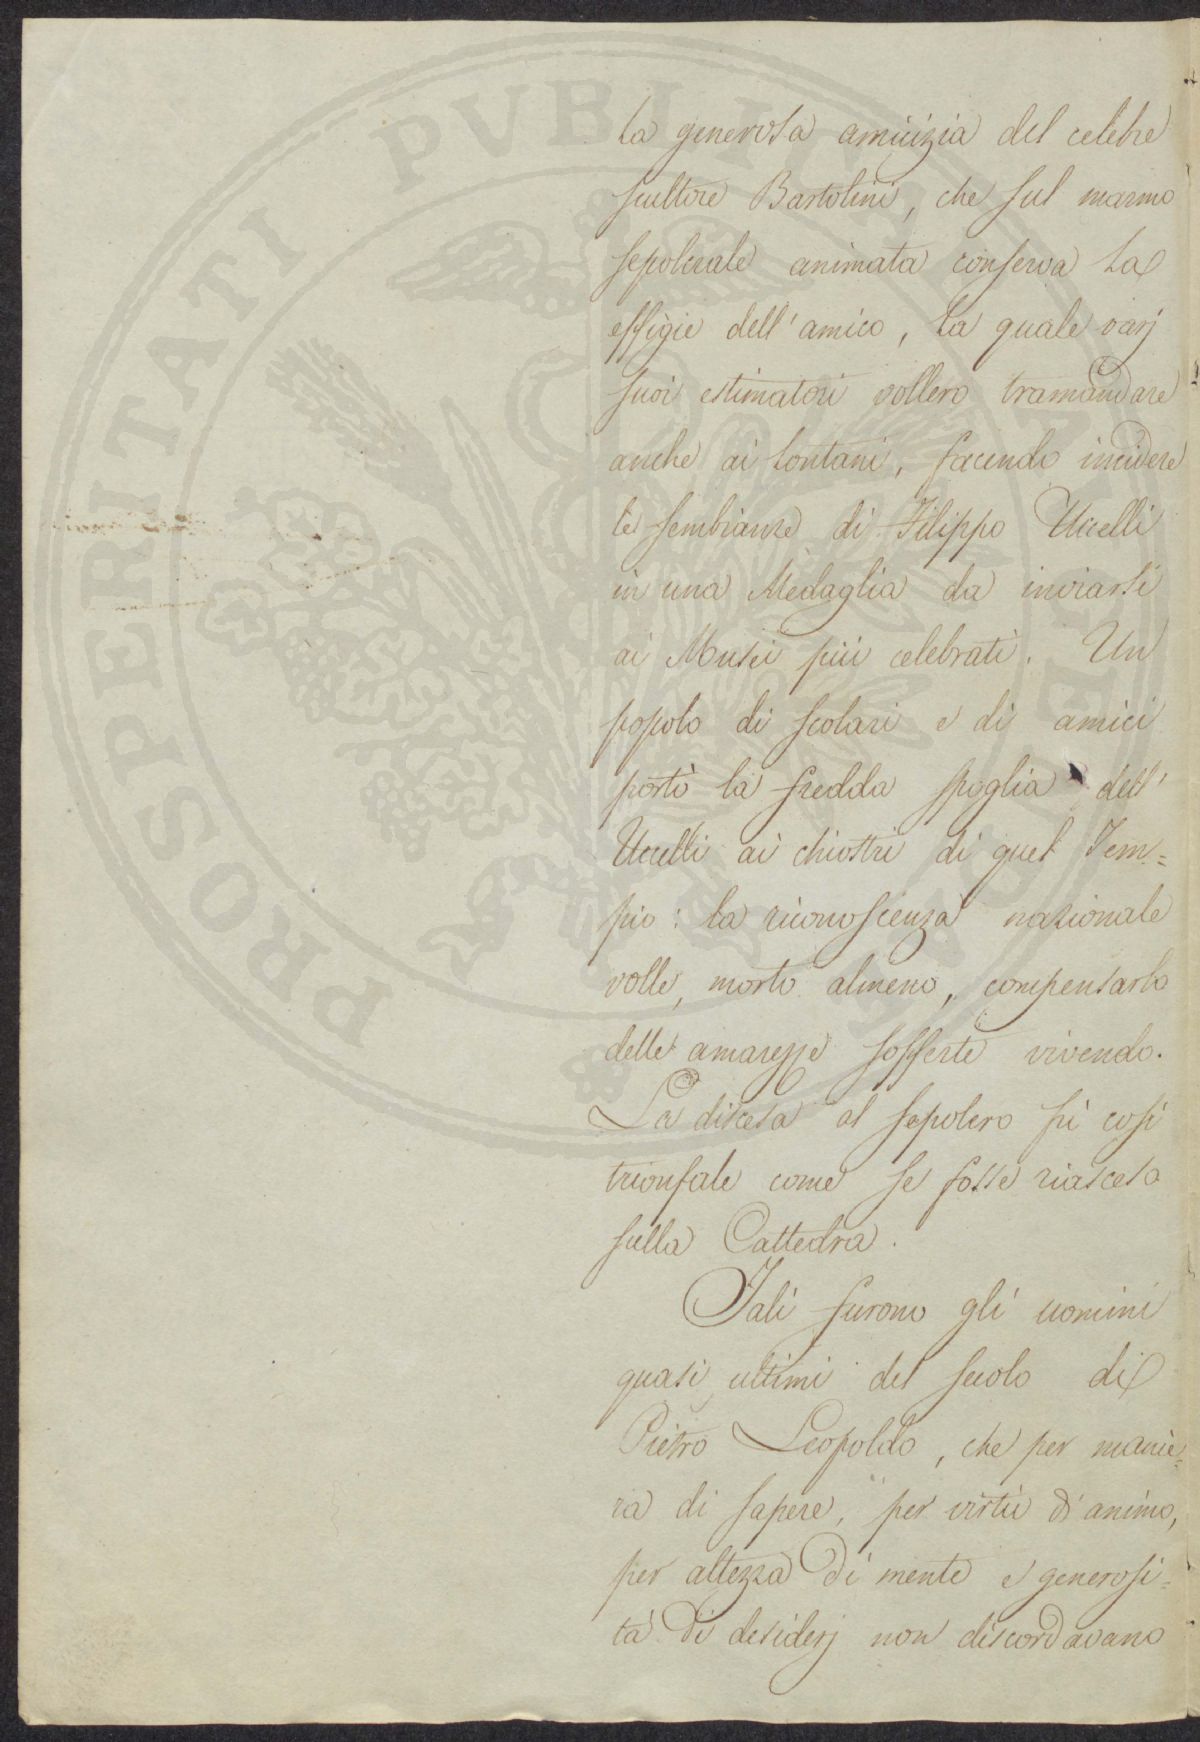 la generosa amicizia del celebre
scultore Bartolini, che sul marmo
sepolcrale animata conserva la
effigie dell'amico, la quale varj
suoi estimatori vollero tramandare
anche ai lontani, facendo incidere
le sembianze di Filippo Uccelli
in una Medaglia da inviarsi
ai Musei più celebrati. Un
popolo di scolari e di amici
portò la fredda spoglia dell'
Uccelli ai chiostri di quel Tem=
pio: la riconoscenza nazionale
volle, morto almeno, compensarlo
delle amarezze sofferte vivendo.
La discesa al sepolcro fù così
trionfale come se fosse riasceso
sulla Cattedra.
Tali furono gli uomini
quasi ultimi del secolo di
Pietro Leopoldo, che per manie=
ra di sapere, per virtù d'animo,
per altezza di mente e generosi=
tà di desiderj non discordavano
PROSPERITATI PVBLICAE